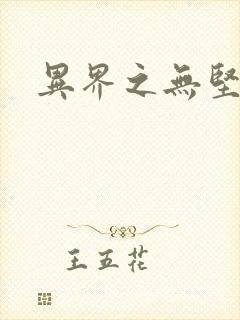 異界之無堅
王五花